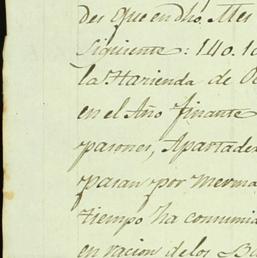 des que en dho. Mes
Siguiente: 140. 10
la Hazienda de
en el Año finante
pasones, Apartade
pasan por Merma
tiempo ha consumi
en racion de los Ba